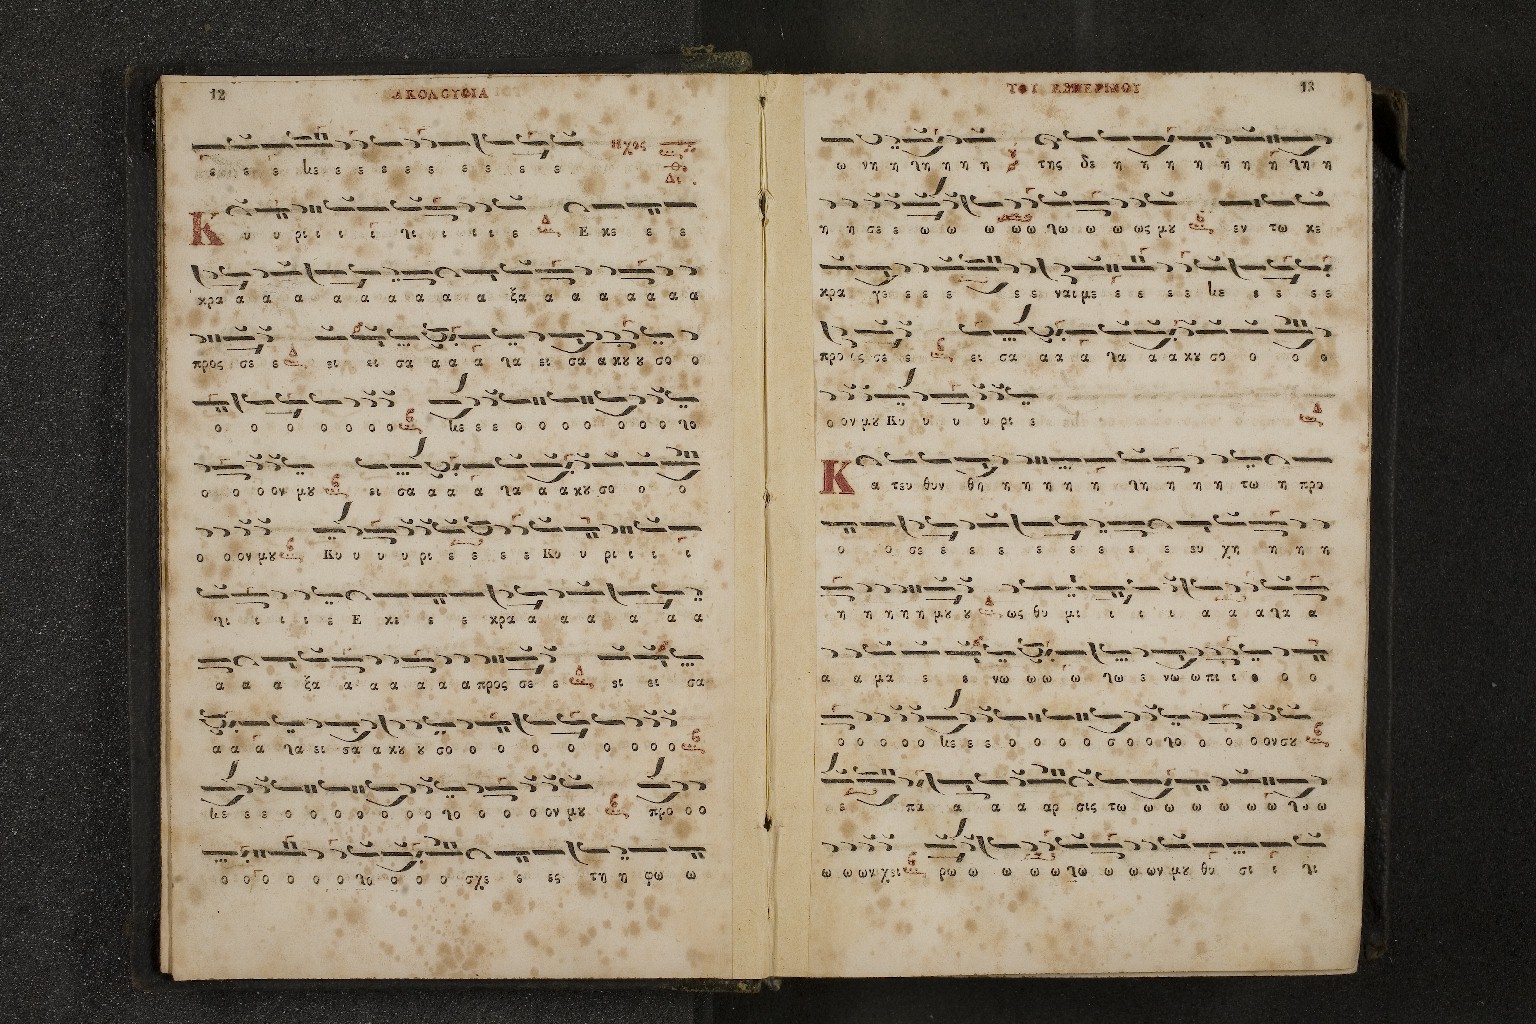 12 ΑΚΟΛΟΥΘΙΑ
ε ε ε με ε ε ε ε ε ε ε ε ε ε Ηχος Δι
Κ υ υ ρι ι ι ι λι ι ι ι ε Ε κε ε ε
κρα α α α α α α α α α ξα α α α α α α α
προς σε ε ει ει σα α α α λα ει σα α κȣ ȣ σο ο
ο ο ο ο ο ο ο με ε ε ο ο ο ο ο ο ο λο
ο ο ο ον μȣ ει σα α α α λα α α κȣ σο ο ο
ο ο ον μȣ Κυ υ υ υ ρι ε ε ε ε Κυ υ ρι ι ι ι
λι ι ι ι ε Ε κε ε ε κρα α α α α α α
α α α ξα α α α α α α προς σε ε ει ει σα
α α α λα ει σα α κȣ ȣ σο ο ο ο ο ο ο ο ο ο
με ε ε ο ο ο ο ο ο ο ο λο ο ο ο ον μȣ προ ο ο
ο ο ο ο ο ο λο ο ο ο σχε ε ες τη η φω ω
ΤΟΥ ΕΣΠΕΡΙΝΟΥ 13
ω νη η λη η η η της δε η η η η η η η λη η
η η σε ε ω ω ω ω ω λω ω ω ως μȣ εν τω κε
κρα γε ε ε ε ε ε ναι με ε ε ε ε με ε ε ε ε
προ ος σε ε ει σα α α α λα α α κȣ σο ο ο ο
ο ον μȣ Κυ υ υ υ ρι ε
Κ α τευ θυν θη η η η η η λη η η η τω η προ
ο ο σε ε ε ε ε ε ε ε ε ευ χη η η η
η η η η η μȣ ȣ ως θυ μι ι ι ι α α α λα α
α α μα ε ε νω ω ω ω λω ε νω ω πι ι ο ο ο
ο ο ο ο ο με ε ε ο ο ο ο σ ο ο λο ο ο ο ον σȣ
ε πα α α α αρ σις τω ω ω ω ω ω ω ω λω ω
ω ω ων χει ρω ω ω ω ω λω ω ω ων μȣ θυ σι ι λι